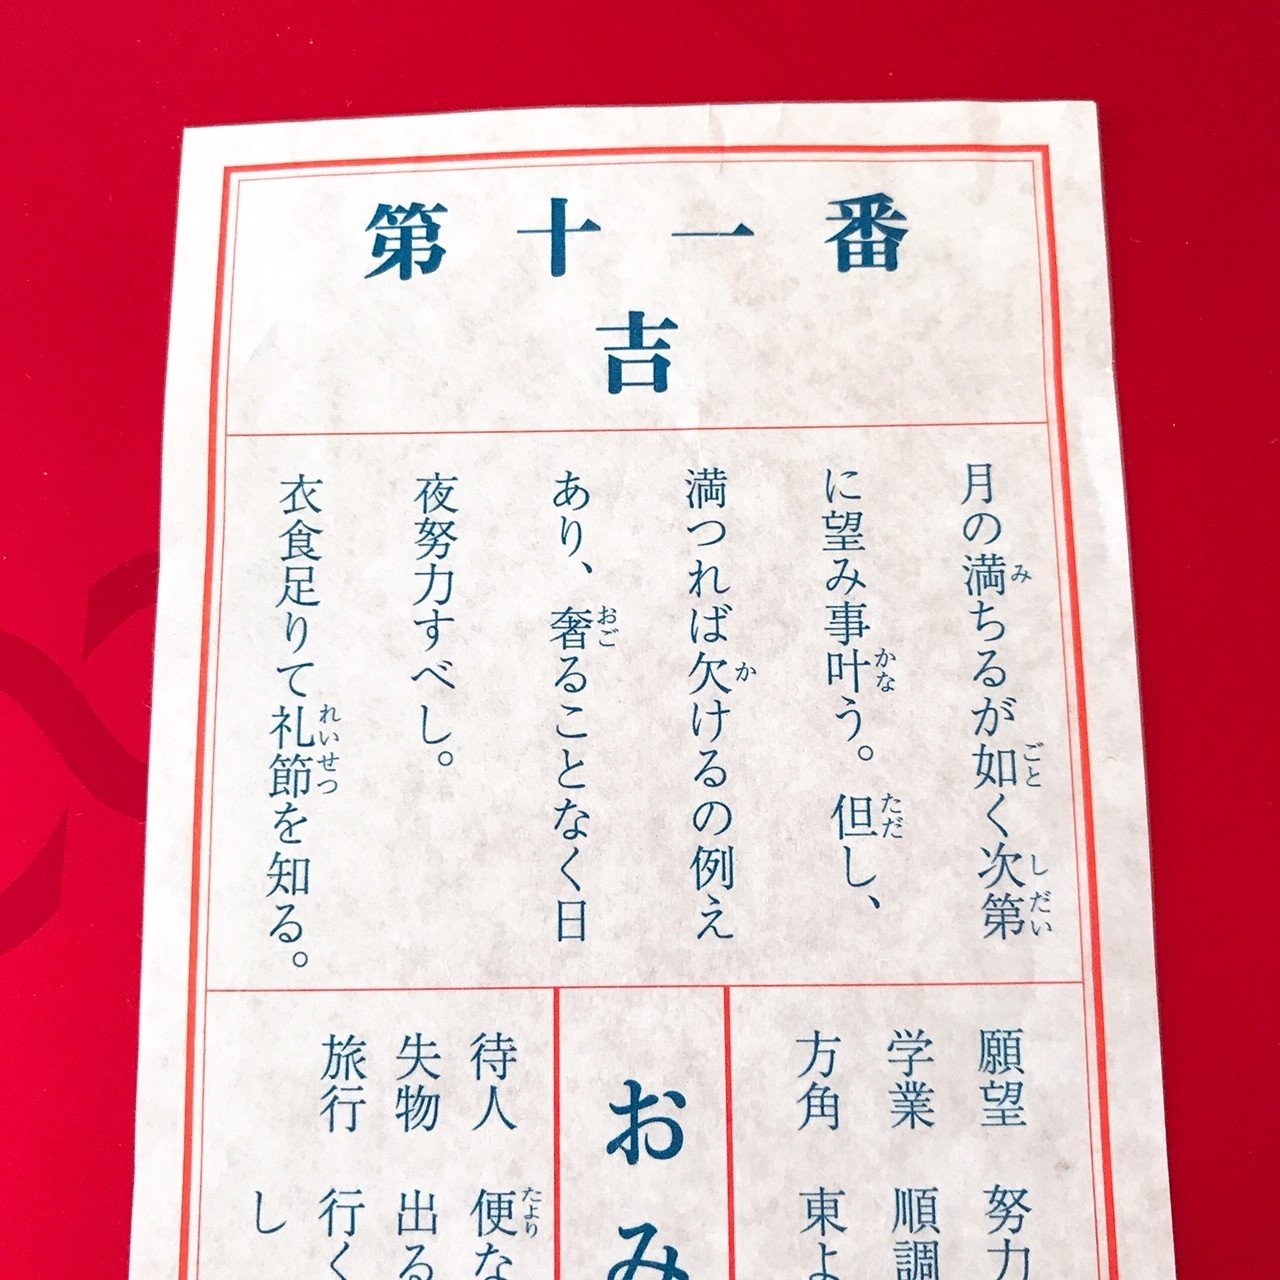 第十一番
吉
月の満ちるが如く次第
に望み事叶う。但し、
満つれば欠けるの例え
あり、奢ることなく日
夜努力すべし。
衣食足りて礼節を知る。
願望 努力
学業 順調
方角 東よ
おみ
待人 便な
失物 出る
旅行 行く
し